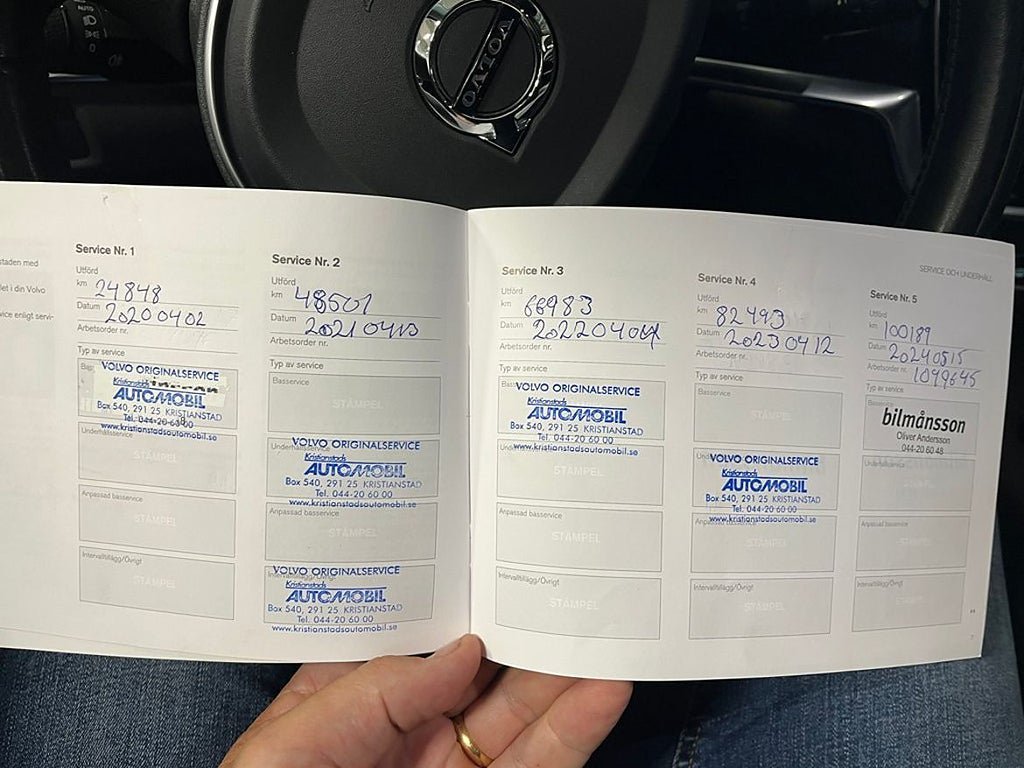 AUTO
0
VOLVO
staden med
let i din Volvo
vice enligt servi-
Service Nr. 1
Utförd
km 24848
Datum 20200402
Arbetsorder nr.
Typ av service
VOLVO ORIGINALSERVICE
Kristianstads
AUTOMOBIL
Box 540, 291 25 KRISTIANSTAD
Tel. 044-20 60 00
www.kristianstadsautomobil.se
Underhållsservice
STÄMPEL
Anpassad basservice
STÄMPEL
Intervalltillägg/Övrigt
STÄMPEL
Service Nr. 2
Utförd
km 48501
Datum 20210413
Arbetsorder nr.
Typ av service
Basservice
STÄMPEL
Underhållsservice
VOLVO ORIGINALSERVICE
Kristianstads
AUTOMOBIL
Box 540, 291 25 KRISTIANSTAD
Tel. 044-20 60 00
www.kristianstadsautomobil.se
Anpassad basservice
STÄMPEL
Intervalltillägg/Övrigt
VOLVO ORIGINALSERVICE
Kristianstads
AUTOMOBIL
Box 540, 291 25 KRISTIANSTAD
Tel. 044-20 60 00
www.kristianstadsautomobil.se
Service Nr. 3
Utförd
km 66983
Datum 202204
Arbetsorder nr.
Typ av service
VOLVO ORIGINALSERVICE
Kristianstads
AUTOMOBIL
Box 540, 291 25 KRISTIANSTAD
Tel. 044-20 60 00
www.kristianstadsautomobil.se
Underhållsservice
STÄMPEL
Anpassad basservice
STÄMPEL
Intervalltillägg/Övrigt
STÄMPEL
SERVICE OCH UNDERHÅLL
Service Nr. 4
Utförd
km 82493
Datum 20230412
Arbetsorder nr.
Typ av service
Basservice
STÄMPEL
VOLVO ORIGINALSERVICE
Kristianstads
AUTOMOBIL
Box 540, 291 25 KRISTIANSTAD
Tel. 044-20 60 00
www.kristianstadsautomobil.se
Anpassad basservice
STÄMPEL
Intervalltillägg/Övrigt
STÄMPEL
Service Nr. 5
Utförd
km 100189
Datum 20240515
Arbetsorder nr. 1099645
Typ av service
Basservice
bilmånsson
Oliver Andersson
044-20 60 48
Underhållsservice
STÄMPEL
Anpassad basservice
STÄMPEL
Intervalltillägg/Övrigt
STÄMPEL